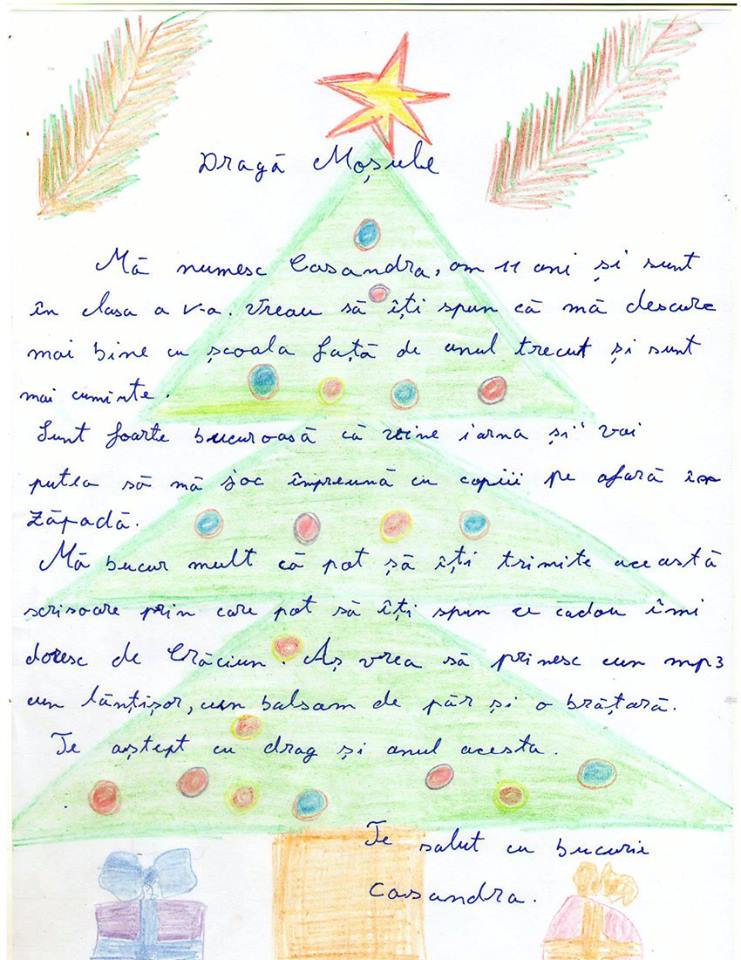 Dragă Moșule
Mă numesc Casandra, am 11 ani și sunt
în clasa a V-a. Vreau să îți spun că mă descurc
mai bine cu școala față de anul trecut și sunt
mai cuminte.
Sunt foarte bucuroasă că vine iarna și voi
putea să mă joc împreună cu copiii pe afară în
zăpadă.
Mă bucur mult că pot să îți trimite această
scrisoare prin care pot să îți spun ce cadou îmi
doresc de Crăciun. Aș vrea să primesc un mp3
un lănțișor, un balsam de păr și o brățară.
Te aștept cu drag și anul acesta.
Te salut cu bucurie
Casandra.